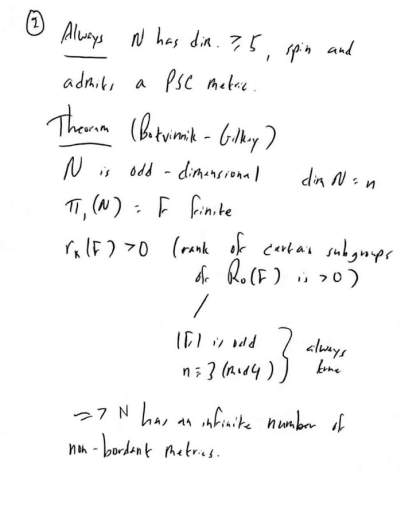 ②
Always N has dim. ≥ 5, spin and
admits a PSC metric.
Theorem (Botvinnik - Gilkey)
N is odd-dimensional dim N = n
π₁(N) = Γ finite
rₙ(Γ) > 0 (rank of certain subgroups
of R₀(Γ) is > 0)
|Γ| is odd } always
n ≡ 3 (mod 4) } true
=> N has an infinite number of
non-bordant metrics.